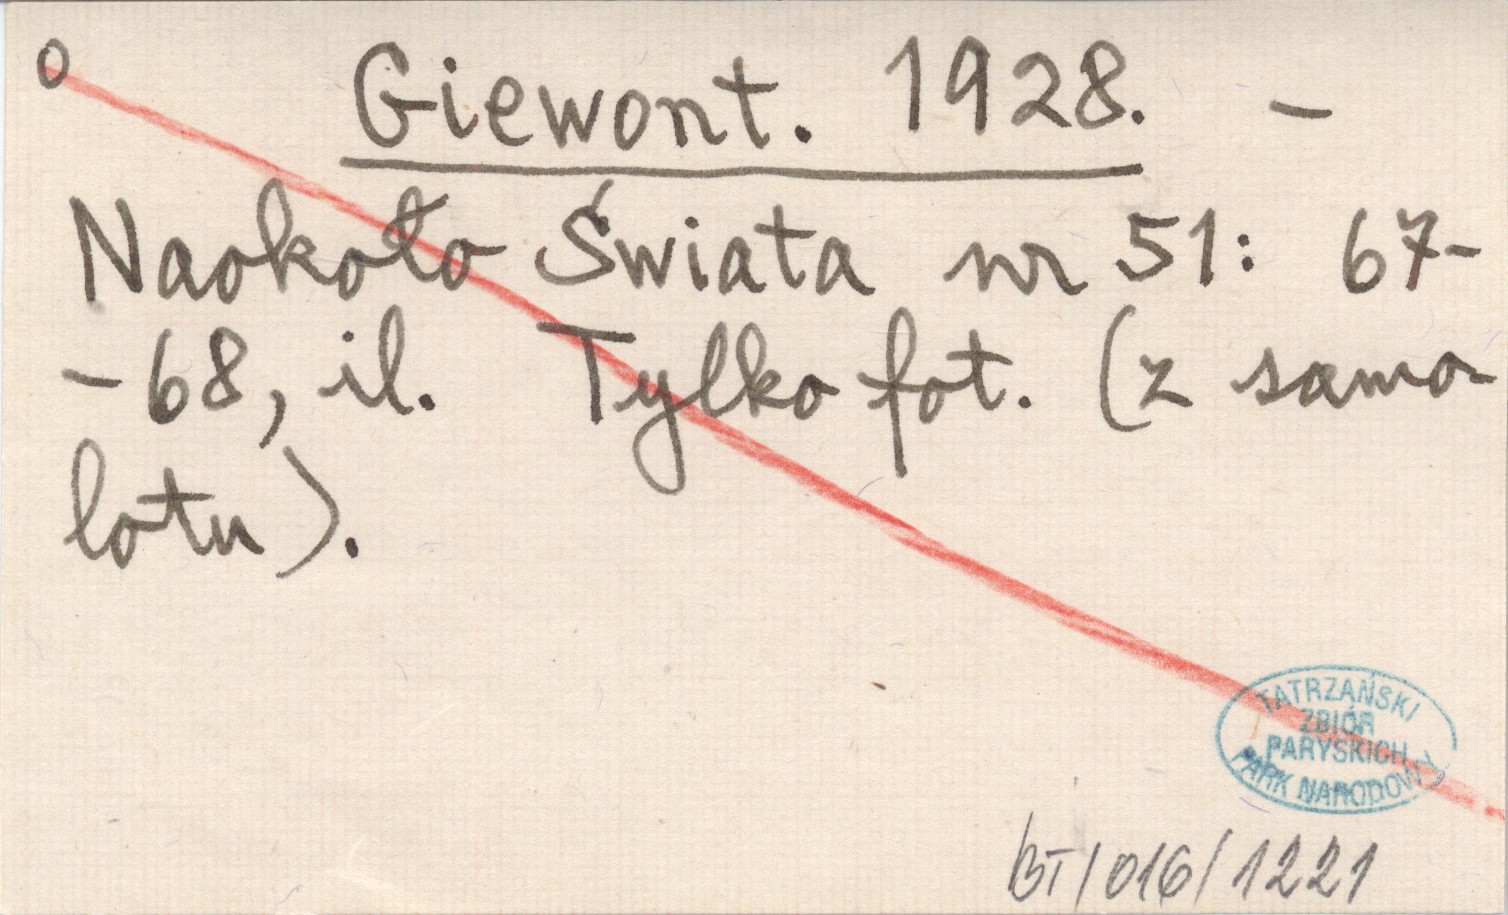 o Giewont. 1928. –
Naokoło Świata nr 51: 67-
-68, il. Tylko fot. (z samo-
lotu).
TATRZAŃSKI
ZBIÓR
PARYSKICH
PARK NARODOWY
BT/016/1221